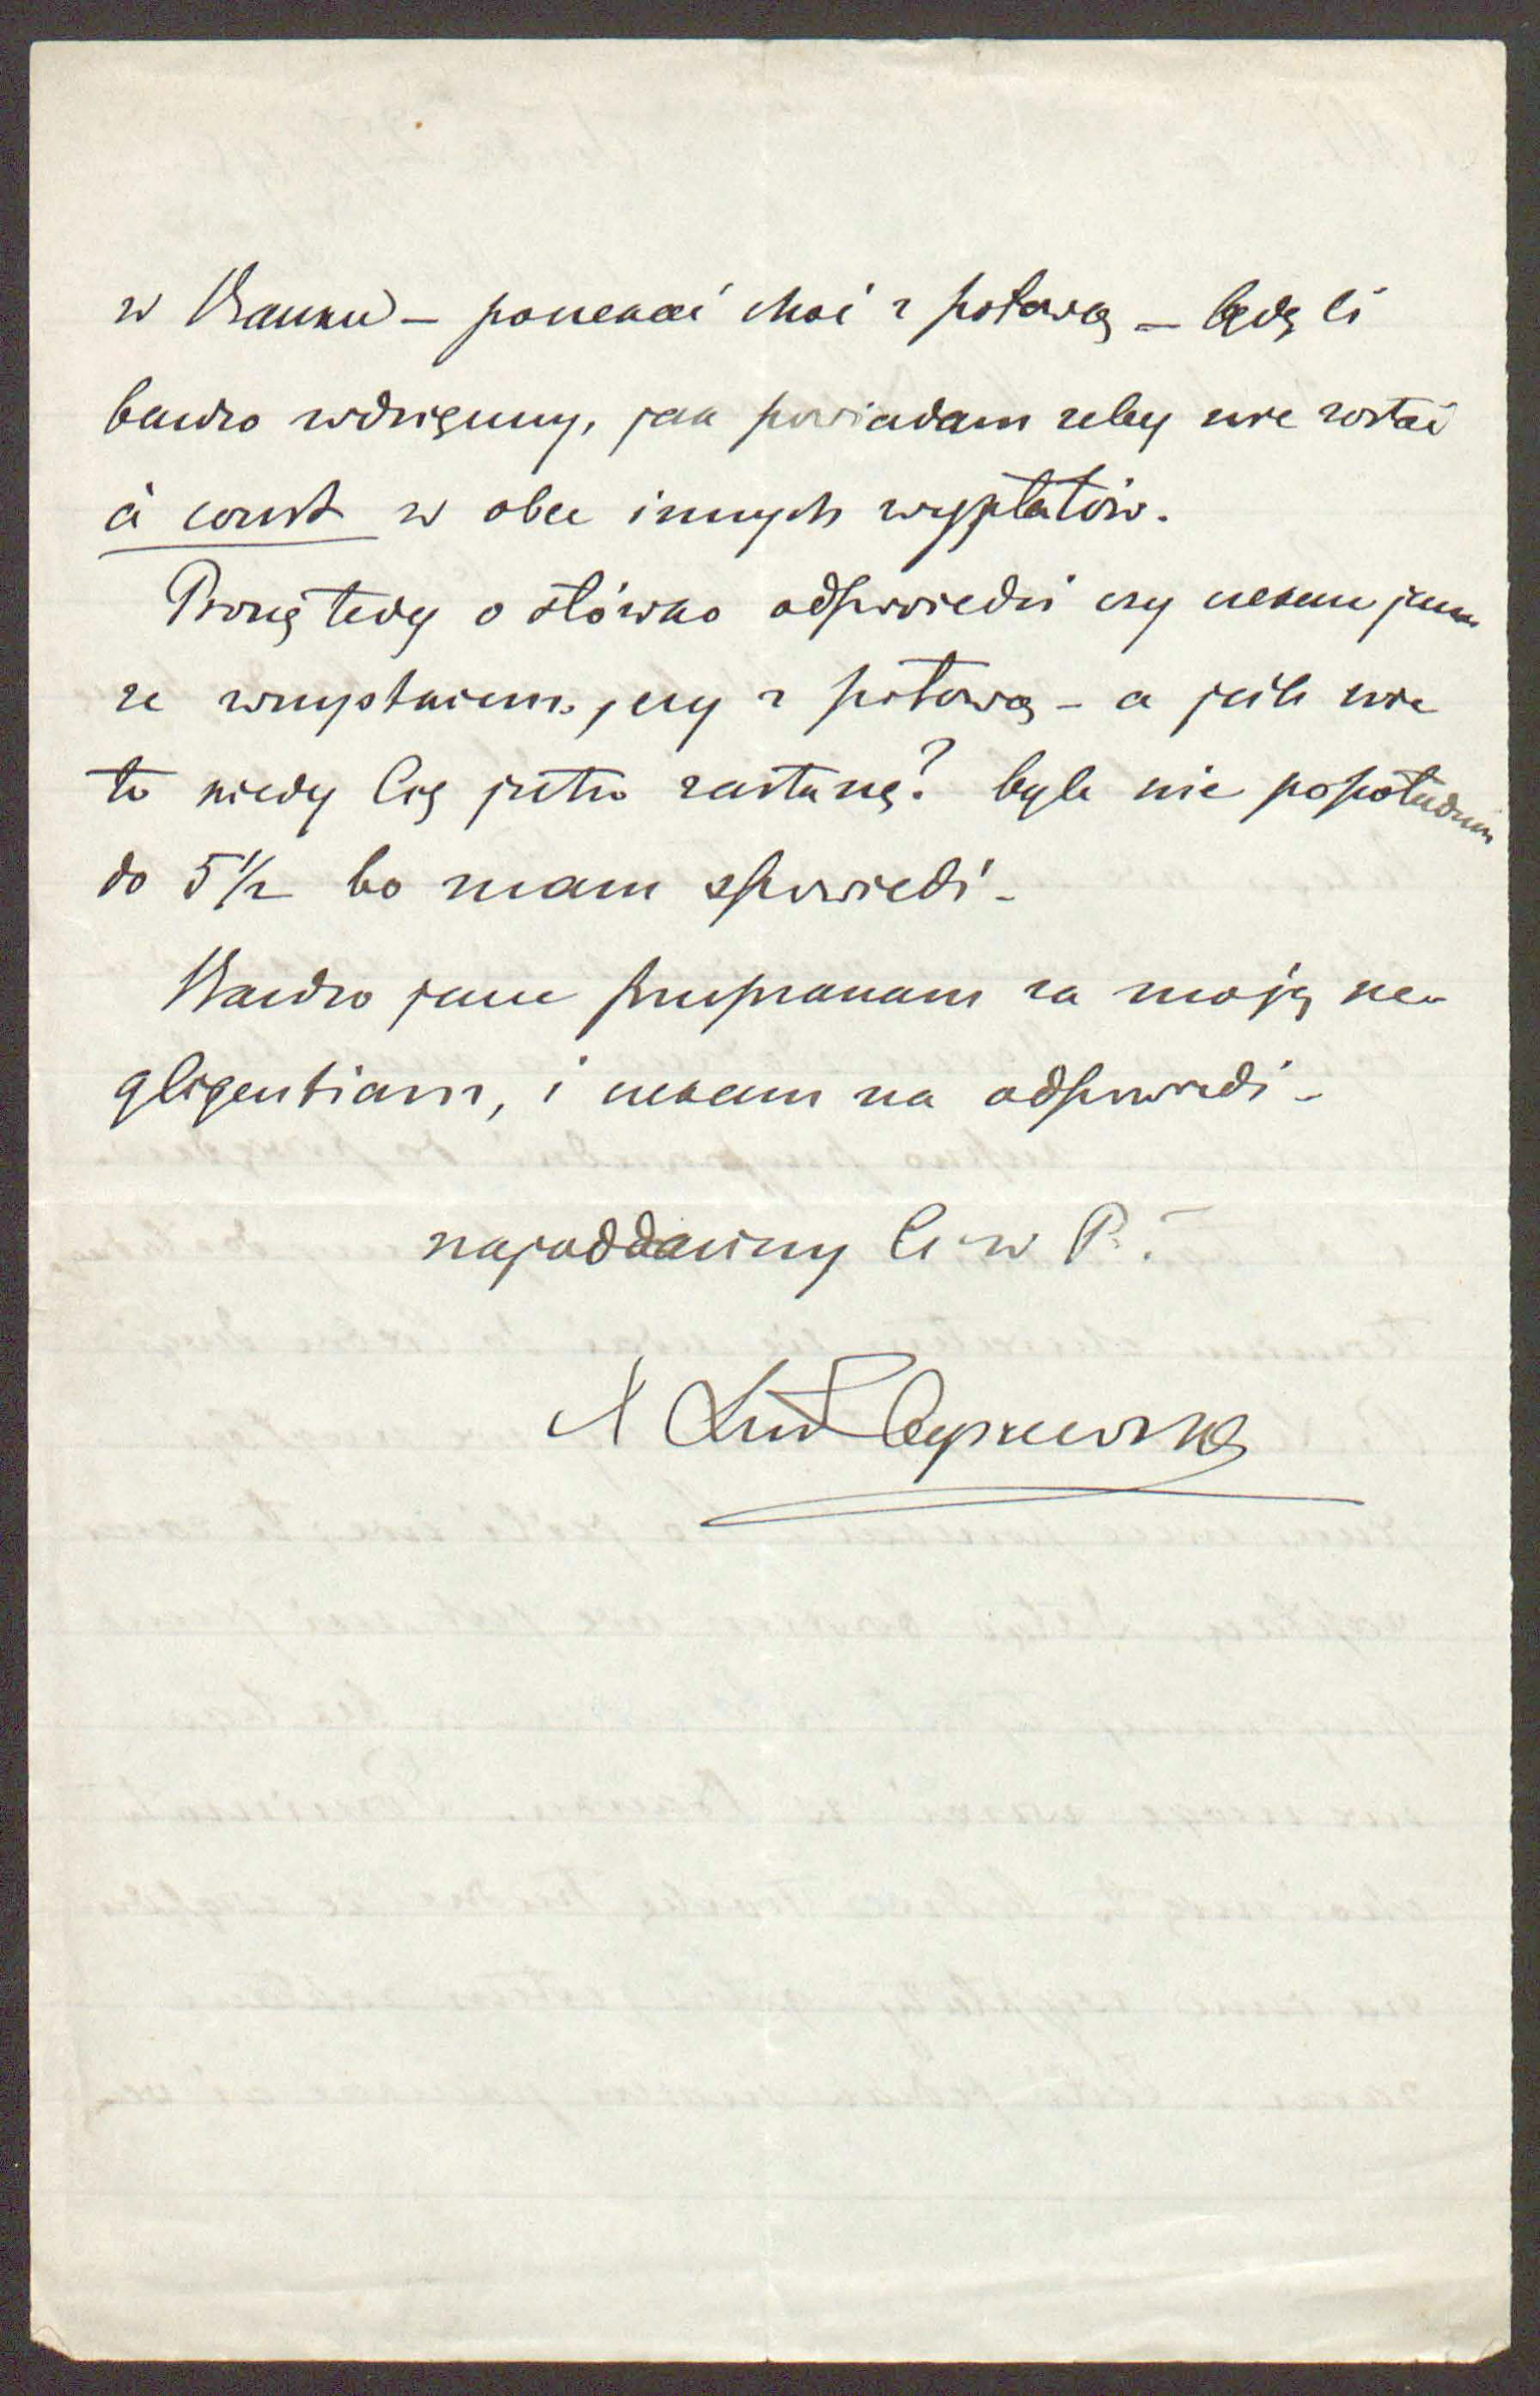 w Banku – poczekać choć z połową – będę Ci
bardzo wdzięczny, jak powiadam żeby nie zostać
à court w obec innych wypłatów.
Proszę tedy o słówko odpowiedzi czy czekasz jeszcze
ze wszystkiem, czy z połową – a jeśli nie
to kiedy Cię jutro zastanę? byle nie popołudniu
do 5 1/2 bo mam spowiedź –
Bardzo jeszcze przepraszam za moją ne-
gligentiam, i czekam na odpowiedź –
najoddańszy Ci w P.
X Czyszewski